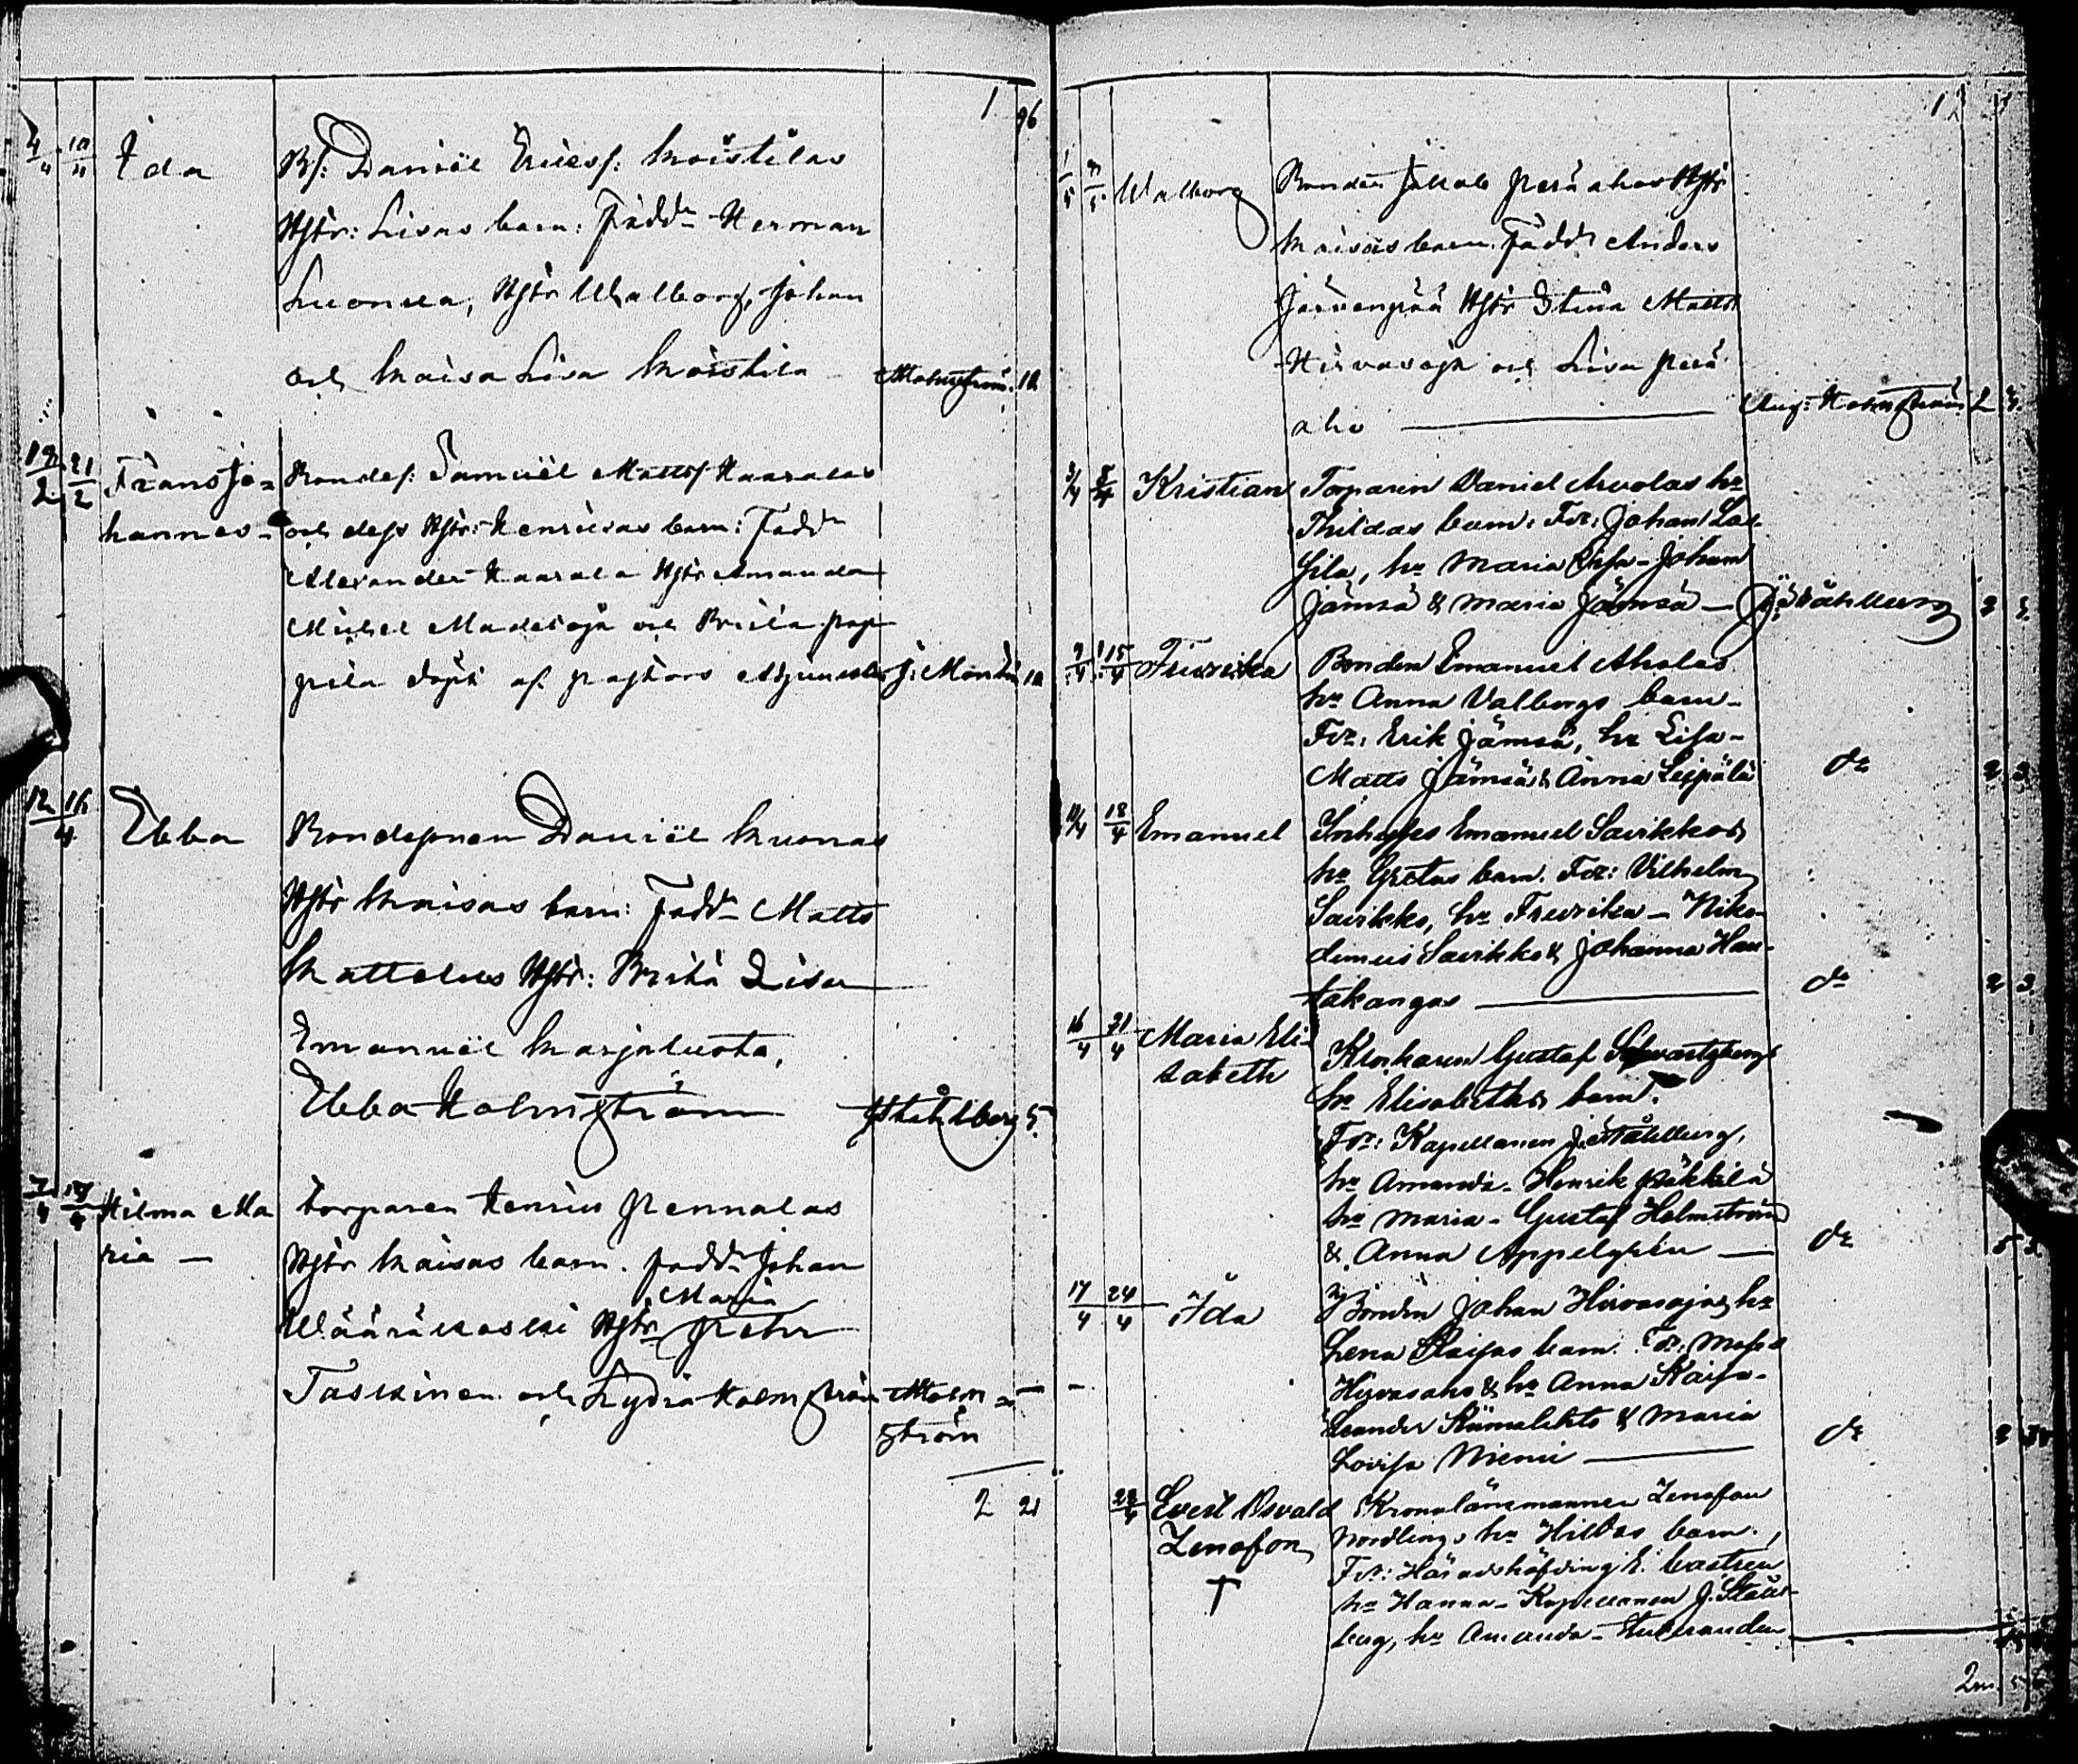 1 96
4/4 10/4 Ida Bs: Daniel Ericss: Koistilas
Hstr: Lisas barn: Fadd. Herman
Luonua, Hstr Walborg, Johan
och Kaisa Lisa Koistila Holmström. 10
19/2 21/2 Frans Jo=
hannes -
Bondes: Samuel Matts. Kaaralas
och dess Hstr: Henrikas barn: Fadd
Alexander Kaarala Hstr Amanda
Michel Madetoja och Briita Pap
pila döpt af pastors Adjunkten J. Montin 10
12 16/4 Ebba Bondesonen Daniel Kuonas
Hstr Kaisas barn: Fadd. Matts
Kattelus Hstr: Brita Lisa
Emanuel Marjaluoto,
Ebba Holmström J Ståhlberg 5.
7/4 17/4 Hilma Ma
ria —
Torparen Henric Pennalas
Hstr Kaisas barn. fadd. Johan
Maria
Wääräkoski Hstr Petr
Taskinen och Lydia Holmström Holm=
ström —
2 21
1/5 7/5 Walborg Bonden Jakob Peräahos Hstr
Kaisas barn. Fadd. Anders
Järvenpää Hstr Stina Matts
Hirvasoja och Lisa Perä
aho — Aug: Holmström 2 3.
3/4 8/4 Kristian Torparen Daniel Arvolas hu
Thildas barn. Fdr: Johan Las
sila, hu Maria Lisa - Johan
Jämsä & Maria Jämsä — J. Ståhlberg 2 3.
9/4 15/4 Fredrika Bonden Emanuel Aholas
hu Anna Valborgs barn -
Fdr: Erik Jämsä, hu Lisa -
Matts Jämsä & Anna Leppälä do 2 3
11/4 18/4 Emanuel Inhyses Emanuel Savikkos
hu Gretas barn. Fdr: Vilhelm
Savikko, hu Fredrika - Niko-
demus Savikko & Johanna Hau-
takangas — do 2 3.
16/4 21/4 Maria Eli-
sabeth
Klockaren Gustaf Schwartzbergs
hu Elisabeths barn.
Fdr: Kapellanen J. Ståhlberg,
hu Amanda - Henrik Päkkilä
hu Maria - Gustaf Holmström
& Anna Appelgrén — do 5 3.
17/4 24/4 Ida Bonden Johan Hirvasojas hu
Lena Kaisas barn. Fdr.
Hirvasaho & hu Anna Kaisa -
Leander Kämälehto & Maria
Lovisa Niemi — do 2
28/4 Evert Osvald
Zenofon
†
Kronolänsmannen Zenofon
Nordlings hu Hildas barn.
Fdr: Häradshöfding E. Castren
hu Hanna - Kapellanen J. Ståhl-
berg, hu Amanda - Studeranden